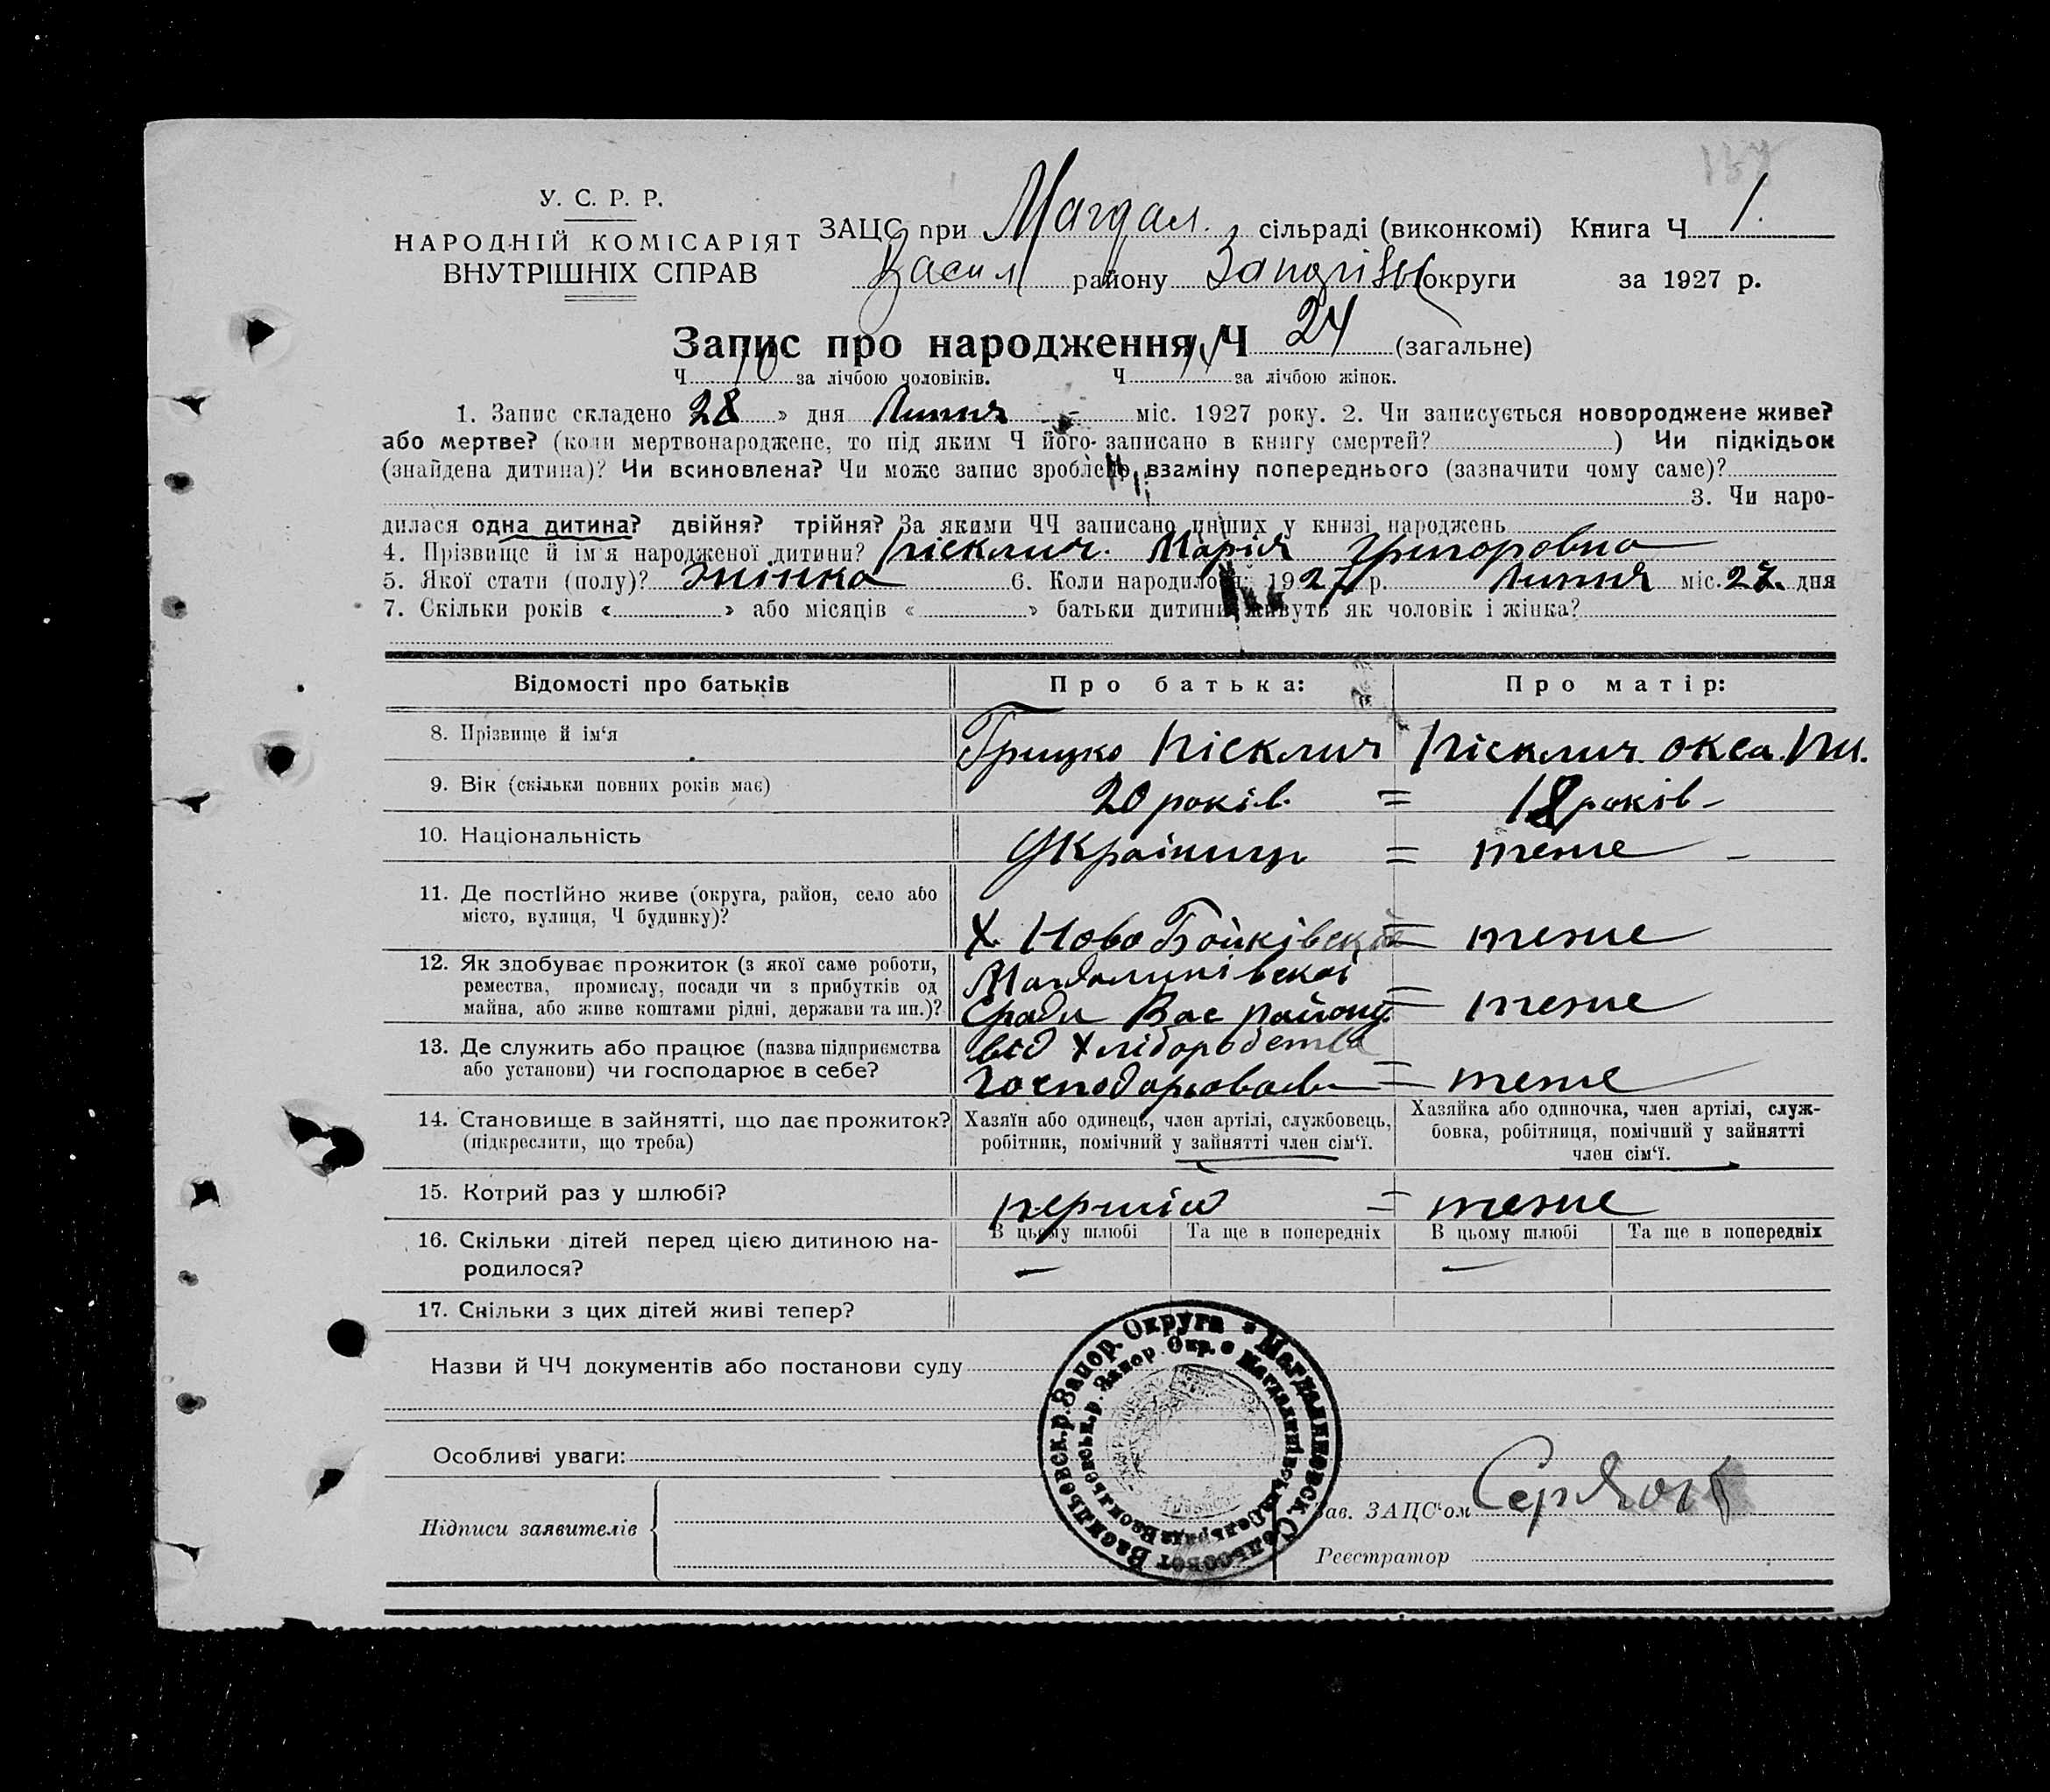 У. С. Р. Р.
НАРОДНІЙ КОМІСАРІЯТ
ВНУТРІШНІХ СПРАВ
ЗАЦС при Магдал. сільраді (виконкомі) Книга Ч 1.
Васил району округи за 1927 р.
Запис про народження Ч 24 (загальне)
Ч 10 за лічбою чоловіків. Ч 14 за лічбою жінок.
1. Запис складено 28 » дня Липня міс. 1927 року. 2. Чи записується новороджене живе?
або мертве? (коли мертвонароджене, то під яким Ч його записано в книгу смертей? ) Чи підкідьок
(знайдена дитина)? Чи всиновлена? Чи може запис зроблено взаміну попереднього (зазначити чому саме)?
3. Чи наро-
дилася одна дитина? двійня? трійня? За якими ЧЧ записано инших у книзі народжень
4. Прізвище й ім'я народженої дитини? Пісклич. Марія Григоровна
5. Якої стати (полу)? жінка 6. Коли народилося: 1927 р. Липня міс. 27. дня
7. Скільки років « » або місяців « » батьки дитини живуть як чоловік і жінка?
Відомості про батьків Про батька: Про матір:
8. Прізвище й ім‘я Грицко Пісклич Пісклич Окса.
9. Вік (скільки повних років має) 20 років. = 18 років –
10. Національність Українці = теже –
11. Де постійно живе (округа, район, село або
місто, вулиця, Ч будинку)?
Х Ново Бойківський = теже
12. Як здобуває прожиток (з якої саме роботи,
ремества, промислу, посади чи з прибутків од
майна, або живе коштами рідні, держави та ин.)?
Магдалинівскої
Сради Вас району = теже
13. Де служить або працює (назва підприємства
або установи) чи господарює в себе?
від Хліборобства
= теже
14. Становище в зайнятті, що дає прожиток?
(підкреслити, що треба)
Хазяїн або одинець, член артілі, службовець,
робітник, помічний у зайнятті член сім‘ї.
Хазяйка або одиночка, член артілі, служ-
бовка, робітниця, помічний у зайнятті
член сім‘ї.
15. Котрий раз у шлюбі? перший = теже
16. Скільки дітей перед цією дитиною на-
родилося?
В цьому шлюбі Та ще в попередніх В цьому шлюбі Та ще в попередніх
— —
17. Скільки з цих дітей живі тепер?
Назви й ЧЧ документів або постанови суду
Особливі уваги:
Підписи заявителів
Зав. ЗАЦС‘ом
Реєстратор
Магдалиновск. Сельсовет Васильевск.р. Запор. Округа
Магдалинівська Сельрада Васильевськ.р. Запор Окр.